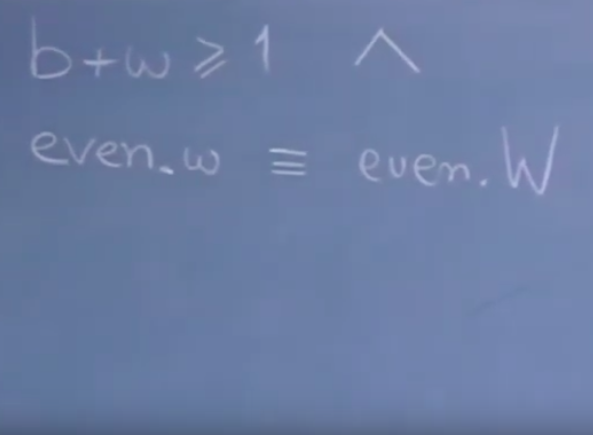 b+w ⩾ 1 ∧
even.w ≡ even.W